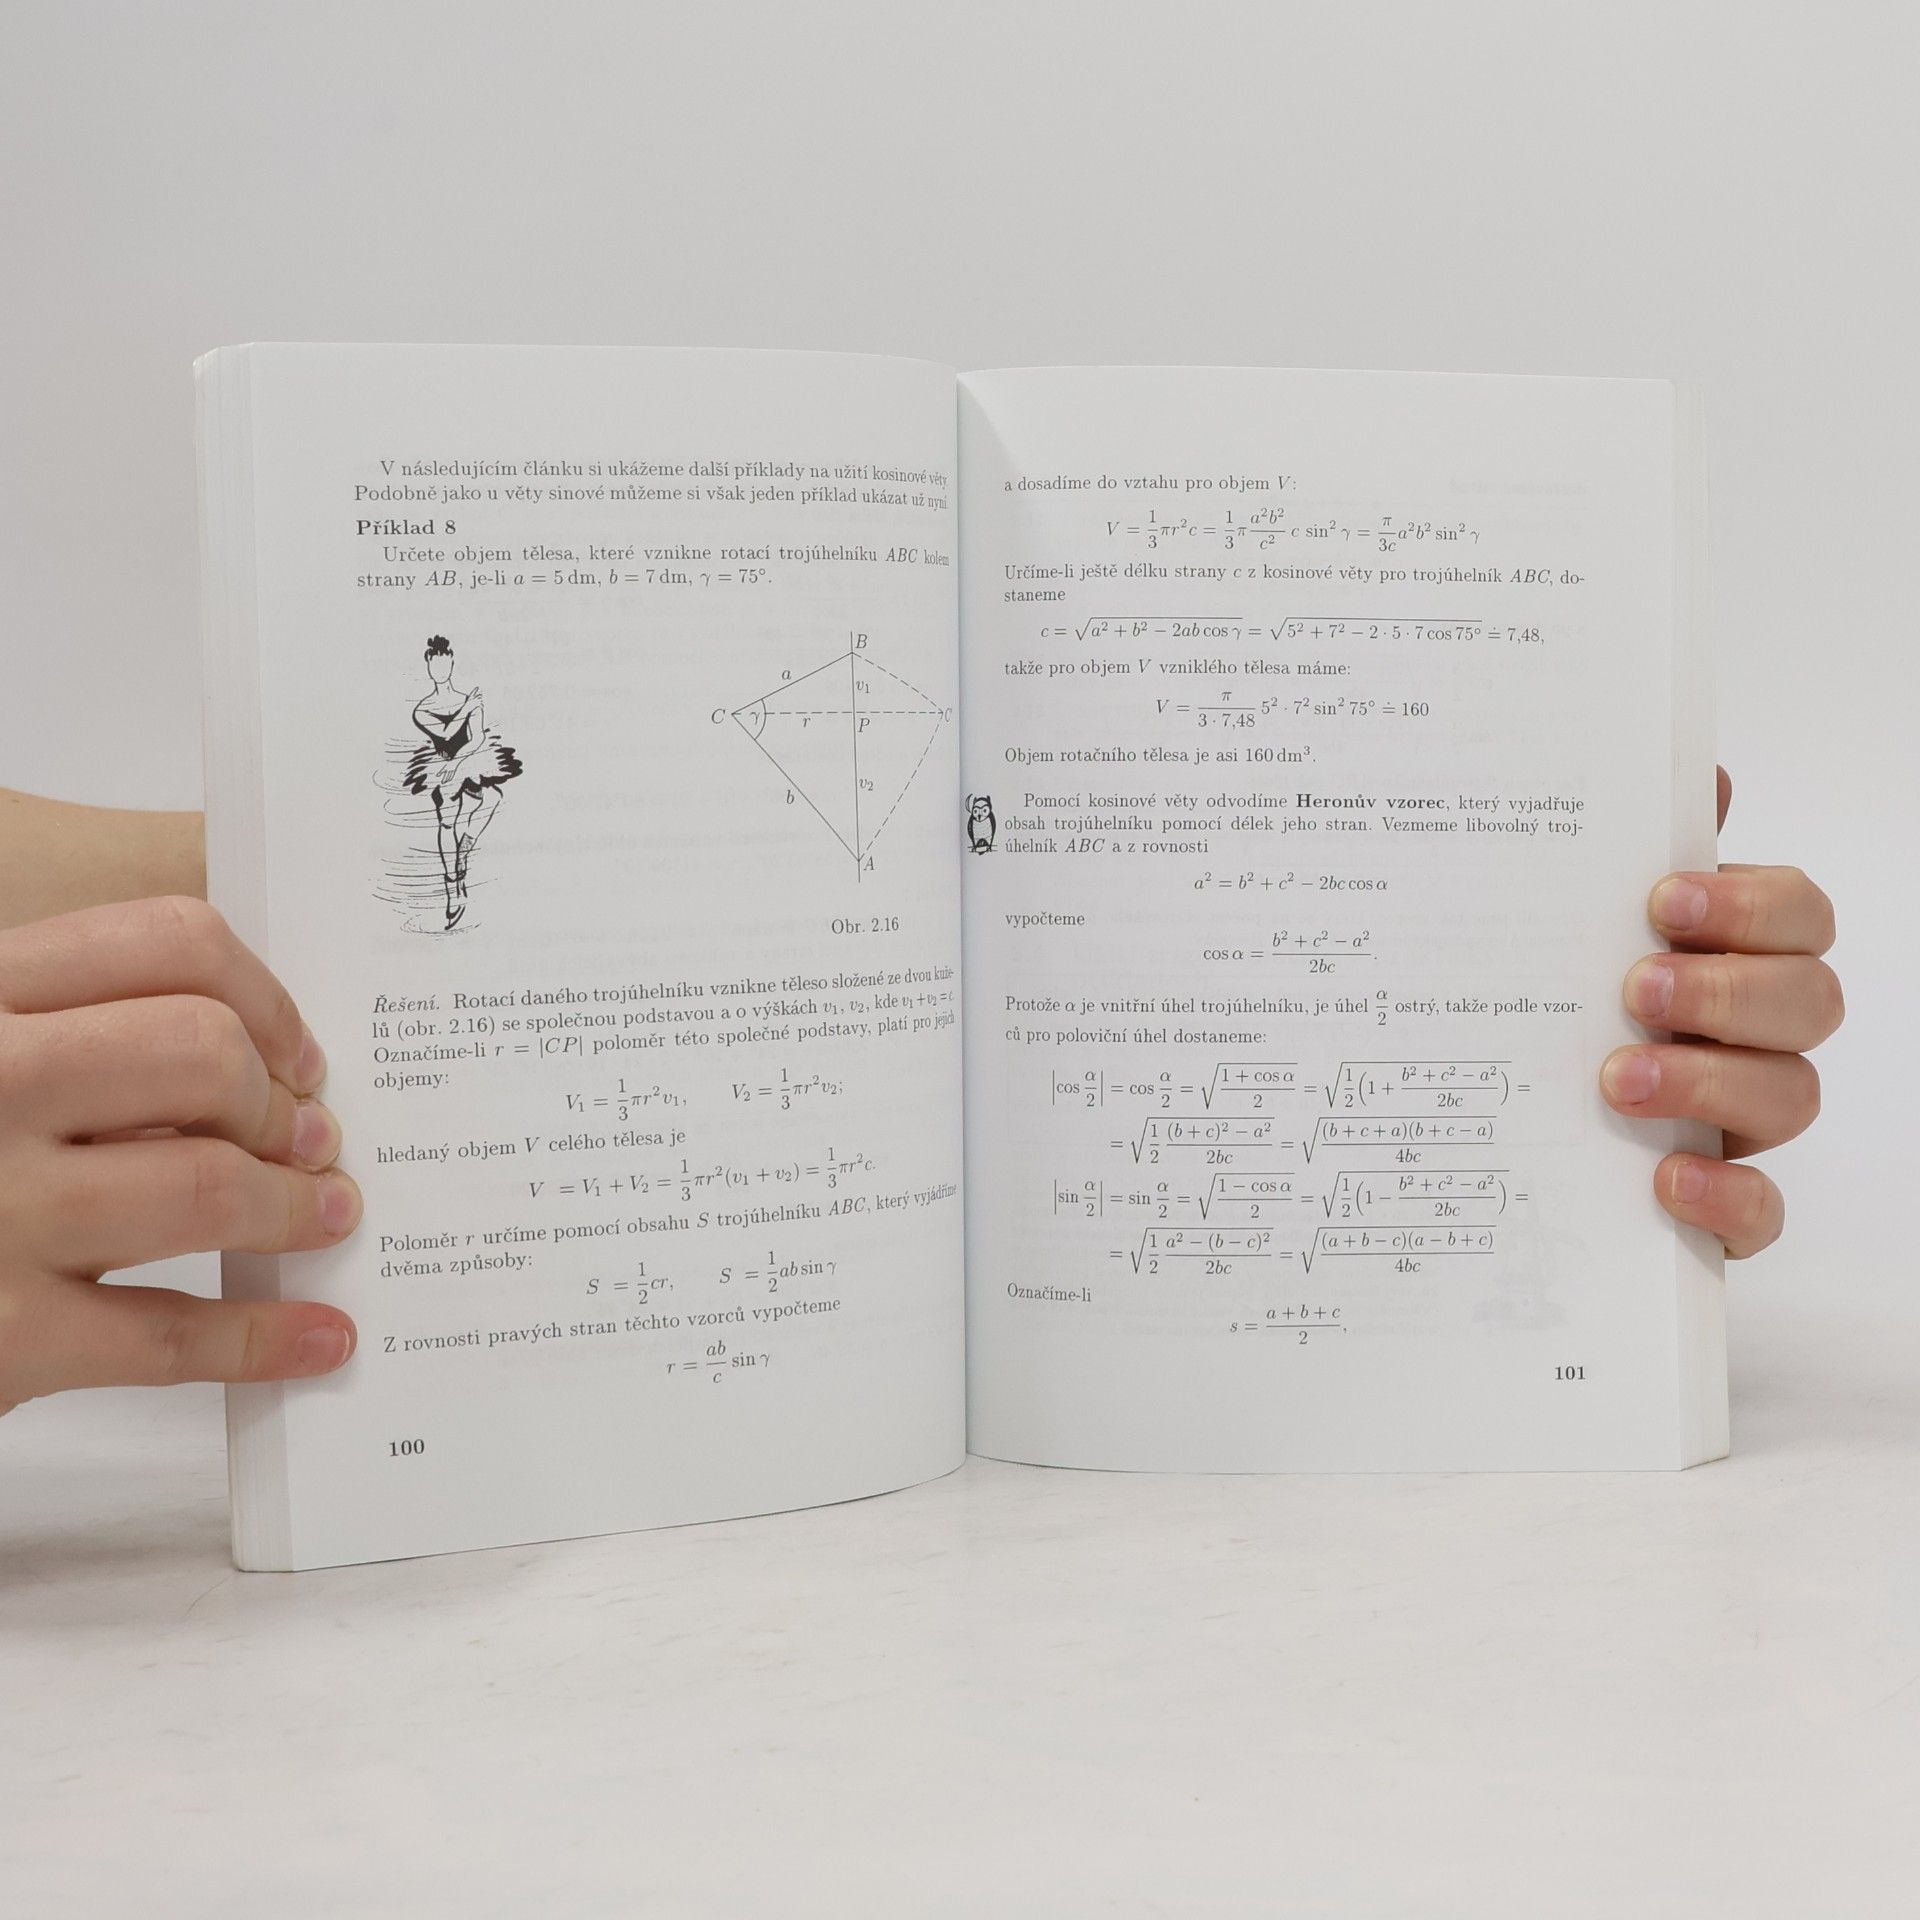 V následujícím článku si ukážeme další příklady na užití kosinové věty.
Podobně jako u věty sinové můžeme si však jeden příklad ukázat už nyní.
Příklad 8
Určete objem tělesa, které vznikne rotací trojúhelníku ABC kolem
strany AB, je-li a = 5 dm, b = 7 dm, γ = 75°.
B
a
v₁
C γ r P C'
b
v₂
A
Obr. 2.16
Řešení. Rotací daného trojúhelníku vznikne těleso složené ze dvou kuže-
lů (obr. 2.16) se společnou podstavou a o výškách v₁, v₂, kde v₁ + v₂ = c.
Označíme-li r = |CP| poloměr této společné podstavy, platí pro jejich
objemy:
V₁ = 1/3 πr²v₁, V₂ = 1/3 πr²v₂;
hledaný objem V celého tělesa je
V = V₁ + V₂ = 1/3 πr²(v₁ + v₂) = 1/3 πr²c.
Poloměr r určíme pomocí obsahu S trojúhelníku ABC, který vyjádříme
dvěma způsoby:
S = 1/2 cr, S = 1/2 ab sin γ
Z rovnosti pravých stran těchto vzorců vypočteme
r = ab/c sin γ
100
a dosadíme do vztahu pro objem V:
V = 1/3 πr²c = 1/3 π a²b²/c² c sin² γ = π/3c a²b² sin² γ
Určíme-li ještě délku strany c z kosinové věty pro trojúhelník ABC, do-
staneme
c = √(a² + b² − 2ab cos γ) = √(5² + 7² − 2 · 5 · 7 cos 75°) ≐ 7,48,
takže pro objem V vzniklého tělesa máme:
V = π/(3 · 7,48) 5² · 7² sin² 75° ≐ 160
Objem rotačního tělesa je asi 160 dm³.
Pomocí kosinové věty odvodíme Heronův vzorec, který vyjadřuje
obsah trojúhelníku pomocí délek jeho stran. Vezmeme libovolný troj-
úhelník ABC a z rovnosti
a² = b² + c² − 2bc cos α
vypočteme
cos α = (b² + c² − a²)/2bc.
Protože α je vnitřní úhel trojúhelníku, je úhel α/2 ostrý, takže podle vzor-
ců pro poloviční úhel dostaneme:
|cos α/2| = cos α/2 = √((1 + cos α)/2) = √(1/2 (1 + (b² + c² − a²)/2bc)) =
= √(1/2 ((b + c)² − a²)/2bc) = √((b + c + a)(b + c − a)/4bc)
|sin α/2| = sin α/2 = √((1 − cos α)/2) = √(1/2 (1 − (b² + c² − a²)/2bc)) =
= √(1/2 (a² − (b − c)²)/2bc) = √((a + b − c)(a − b + c)/4bc)
Označíme-li
s = (a + b + c)/2,
101